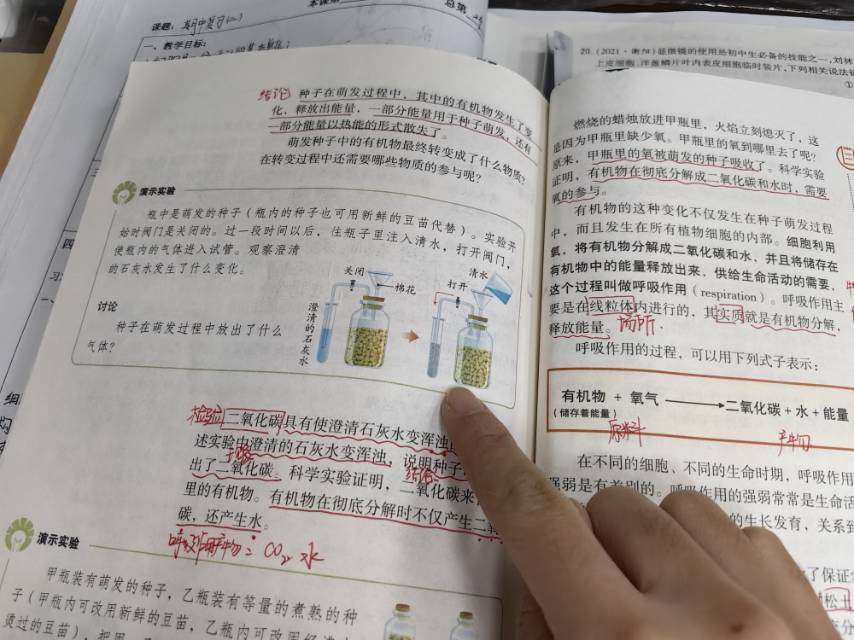 课题：期中复习(二)
一、教学目标：
本课第
总第
20.（2021·衡阳）显微镜的使用是初中生必备的技能之一，刘林
上皮细胞、洋葱鳞片叶内表皮细胞临时装片，下列相关说法
①
结论
种子在萌发过程中，其中的有机物发生了变
化，释放出能量，一部分能量用于种子萌发，还有
一部分能量以热能的形式散失了。
萌发种子中的有机物最终转变成了什么物质？
在转变过程中还需要哪些物质的参与呢？
演示实验
瓶中是萌发的种子（瓶内的种子也可用新鲜的豆苗代替）。实验开
始时阀门是关闭的。过一段时间以后，往瓶子里注入清水，打开阀门，
使瓶内的气体进入试管。观察澄清
的石灰水发生了什么变化。
讨论
种子在萌发过程中放出了什么
气体？
关闭
棉花
澄清的石灰水
清水
打开
检验
二氧化碳具有使澄清石灰水变浑浊的
述实验中澄清的石灰水变浑浊，说明种子
出了二氧化碳。科学实验证明，二氧化碳来
里的有机物。有机物在彻底分解时不仅产生二氧
碳，还产生水。
结论
呼吸作用产物：CO₂ 水
演示实验
甲瓶装有萌发的种子，乙瓶装有等量的煮熟的种
子（甲瓶内可改用新鲜的豆苗，乙瓶内可改用经沸水
烫过的豆苗），把
燃烧的蜡烛放进甲瓶里，火焰立刻熄灭了，这
是因为甲瓶里缺少氧。甲瓶里的氧到哪里去了呢？
原来，甲瓶里的氧被萌发的种子吸收了。科学实验
证明，有机物在彻底分解成二氧化碳和水时，需要
氧的参与。
有机物的这种变化不仅发生在种子萌发过程
中，而且发生在所有植物细胞的内部。细胞利用
氧，将有机物分解成二氧化碳和水，并且将储存在
有机物中的能量释放出来，供给生命活动的需要，
这个过程叫做呼吸作用（respiration）。呼吸作用主
要是在线粒体内进行的，其实质就是有机物分解，
释放能量。
场所
呼吸作用的过程，可以用下列式子表示：
有机物 + 氧气 → 二氧化碳 + 水 + 能量
（储存着能量）
原料
产物
在不同的细胞、不同的生命时期，呼吸作用
强弱是有差别的。呼吸作用的强弱常常是生命活
的生长发育，关系到
了保证
松土